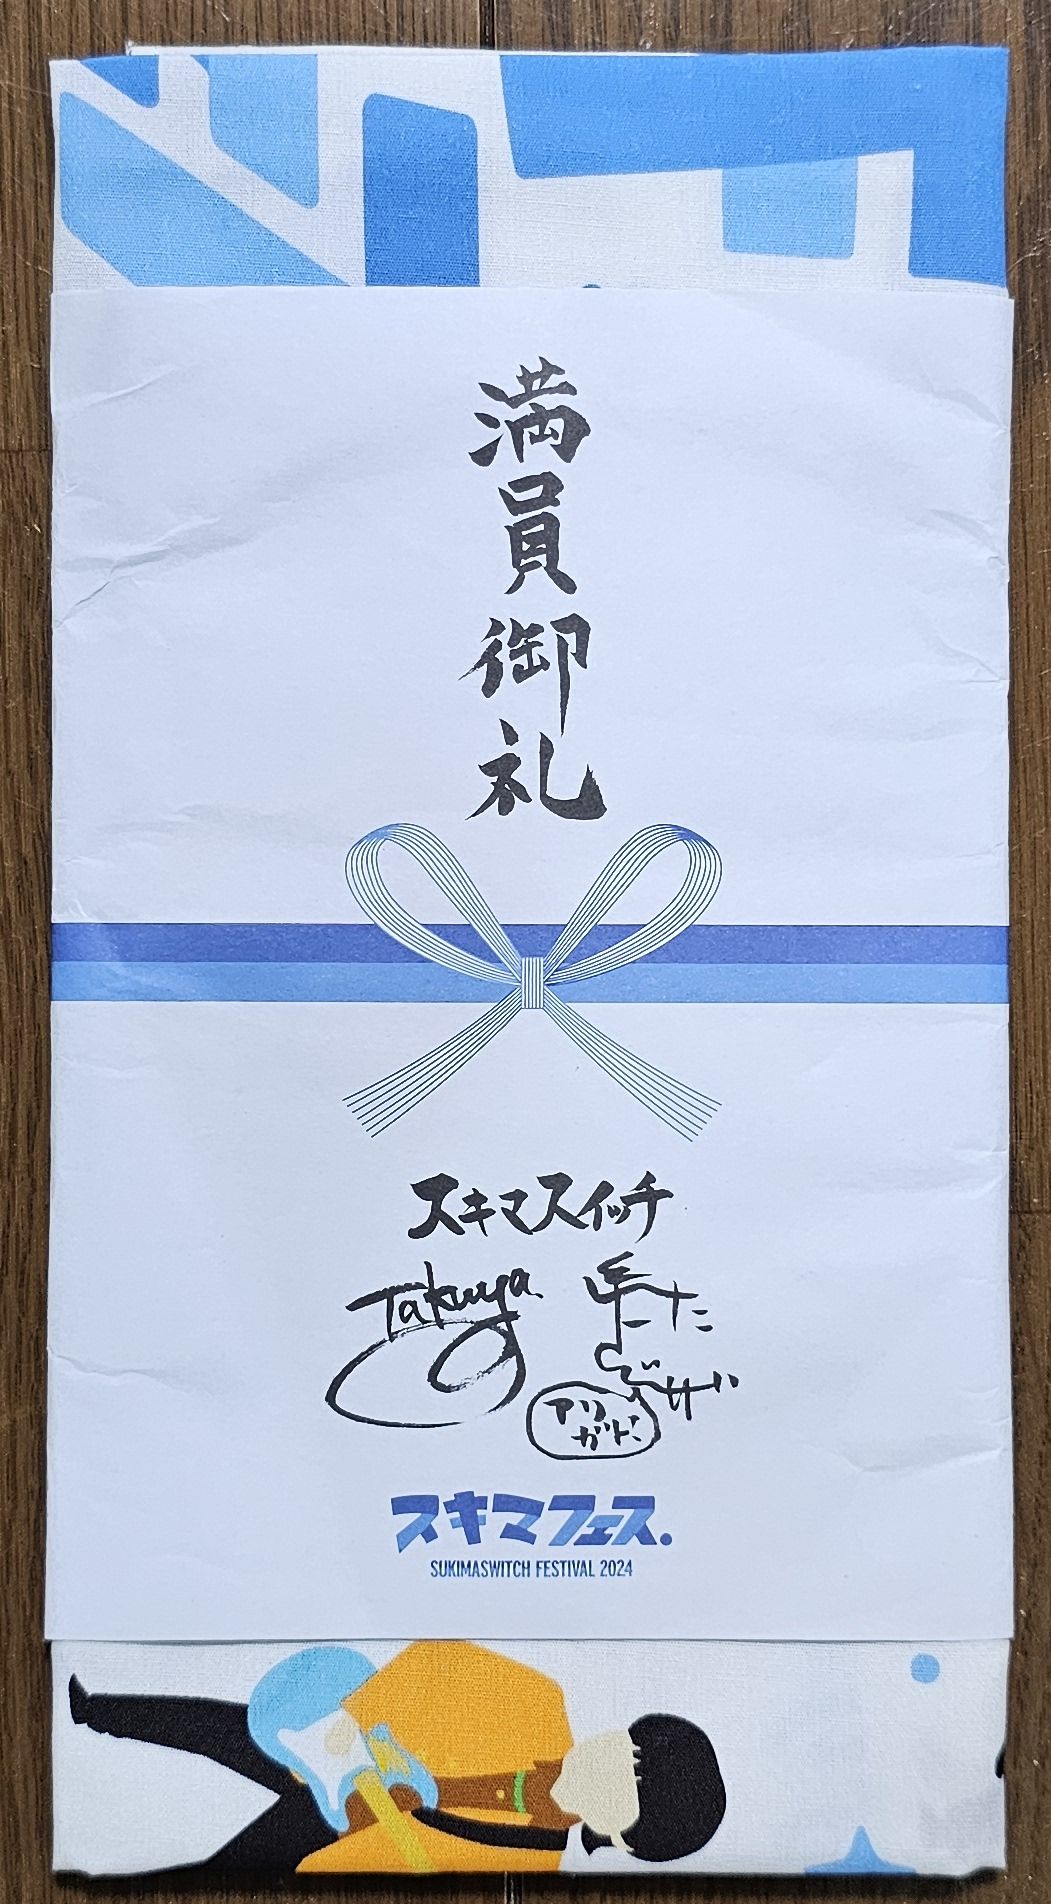 満員御礼
スキマスイッチ
Takuya.
アリ
ガト!
スキマフェス.
SUKIMASWITCH FESTIVAL 2024